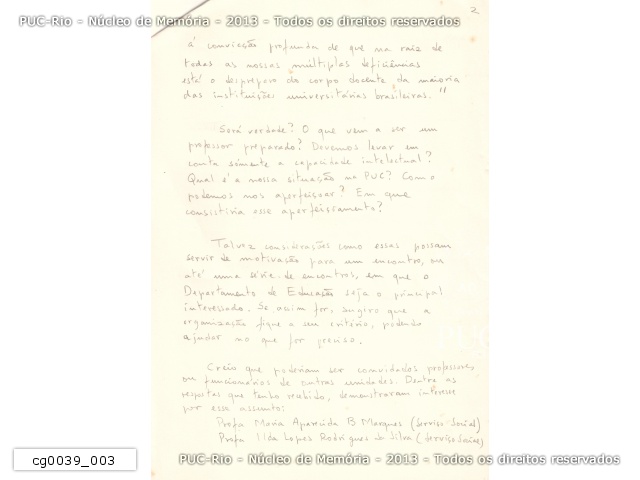 2
PUC-Rio - Núcleo de Memória - 2013 - Todos os direitos reservados
à convicção profunda de que na raiz de
todas as nossas múltiplas deficiências
está o despreparo do corpo docente da maioria
das instituições universitárias brasileiras."
Será verdade? O que vem a ser um
professor preparado? Devemos levar em
conta sòmente a capacidade intelectual?
Qual é a nossa situação na PUC? Como
podemos nos aperfeiçoar? Em que
consistiria esse aperfeiçoamento?
Talvez considerações como essas possam
servir de motivação para um encontro, ou
até uma série de encontros, em que o
Departamento de Educação seja o principal
interessado. Se assim for, sugiro que a
organização fique a seu critério, podendo
ajudar no que for preciso.
Creio que poderiam ser convidados professores
ou funcionários de outras unidades. Dentre as
respostas que tenho recebido, demonstraram interesse
por esse assunto:
Profa Maria Aparecida B Marques (Serviço Social)
Profa Ilda Lopes Rodrigues da Silva (Serviço Social)
cg0039_003
PUC-Rio - Núcleo de Memória - 2013 - Todos os direitos reservados